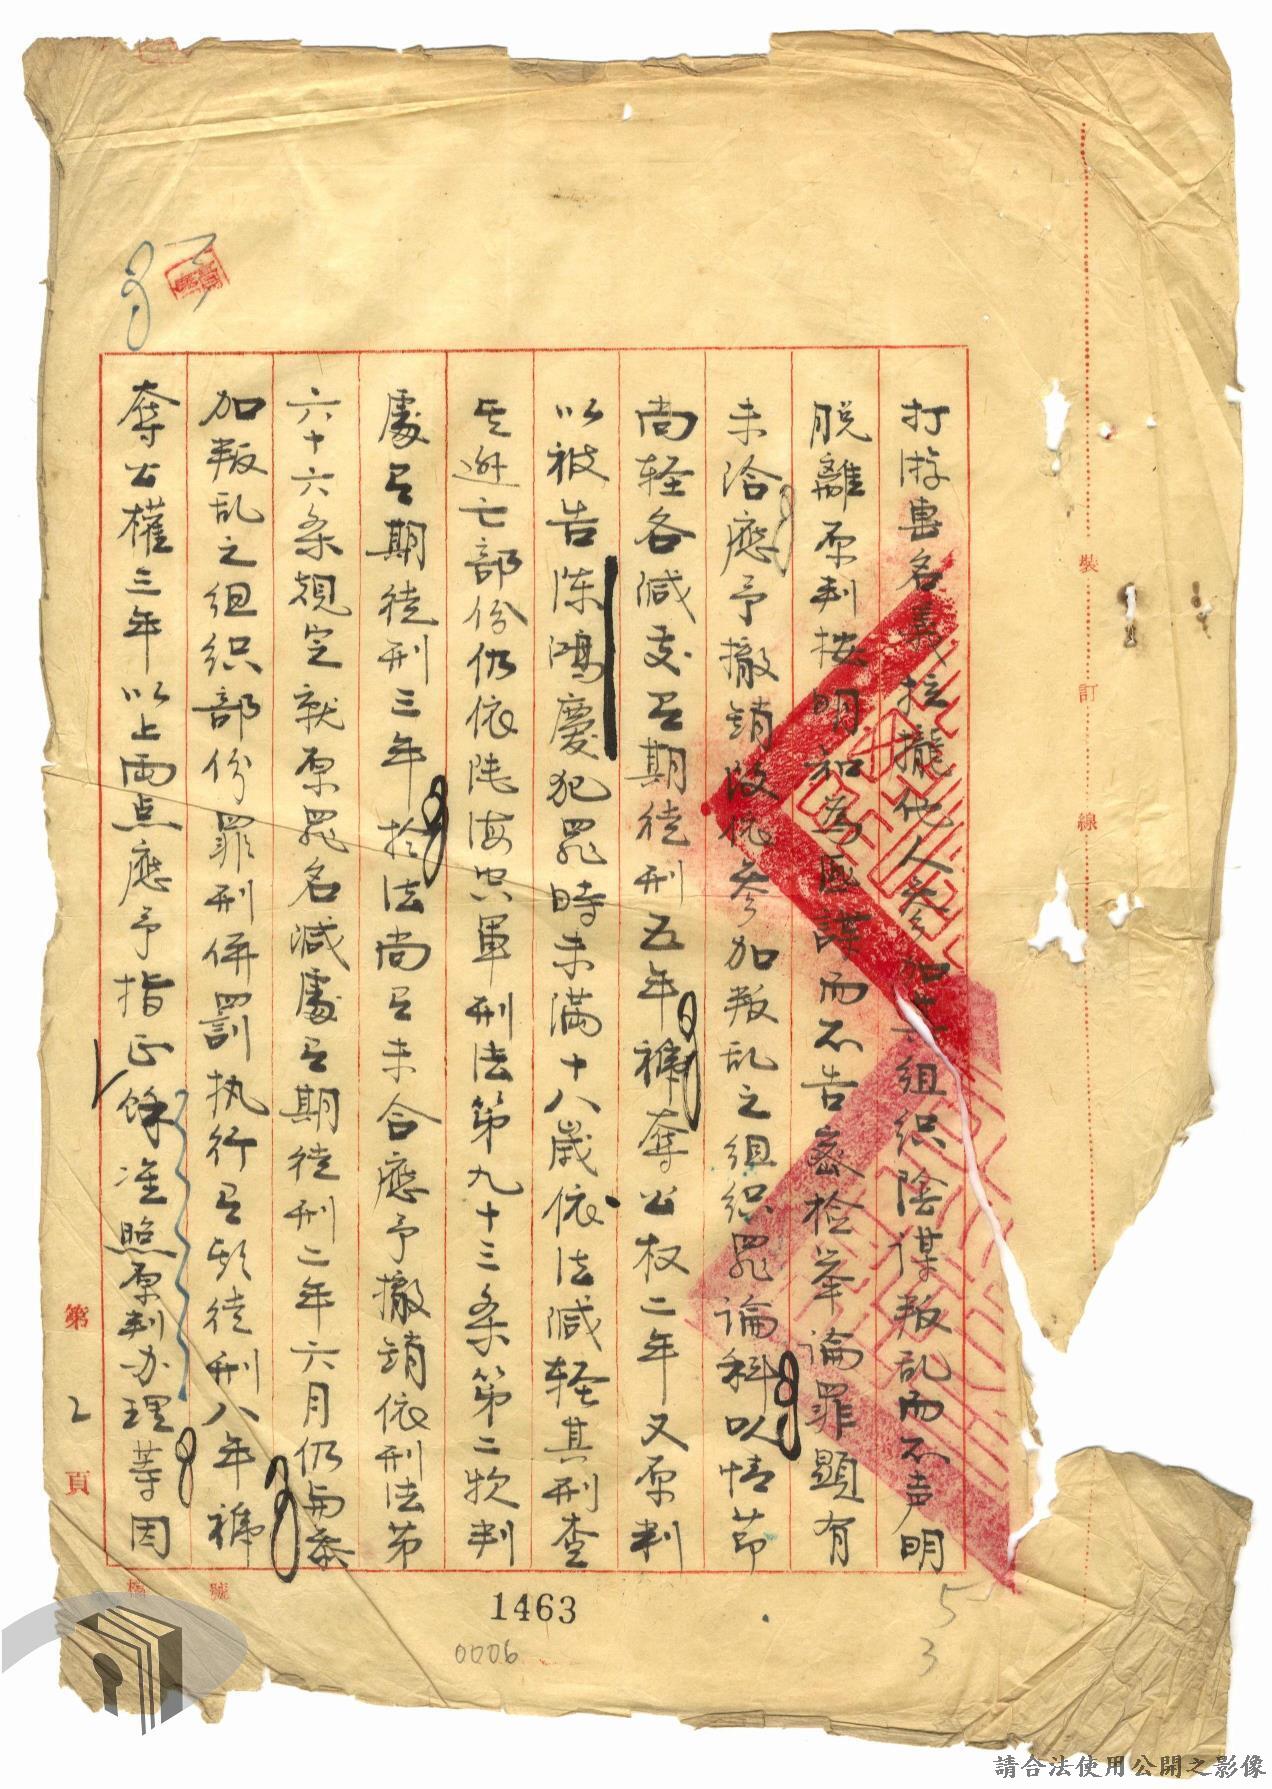 打游击名義拉攏他人參加 組织陰谋叛乱而不声明
脱離原判按明知為匪諜而不告密检举論罪顯有
未洽應予撤銷改依參加叛乱之组织罪論科以情节
尚轻各减处有期徒刑五年褫奪公权二年又原判
以被告陈鴻慶犯罪時未满十八歲依法减轻其刑查
其逃亡部份仍依陸海空軍刑法第九十三条第二款判
處有期徒刑三年於法尚有未合應予撤銷依刑法第
六十六条規定就原罪名减處有期徒刑二年六月仍與參
加叛乱之组织部份罪刑併罰执行有期徒刑八年褫
奪公權三年以上两点應予指正餘准照原判办理等因
裝
訂
線
第 2 頁
1463
0006
5
3
號
請合法使用公開之影像